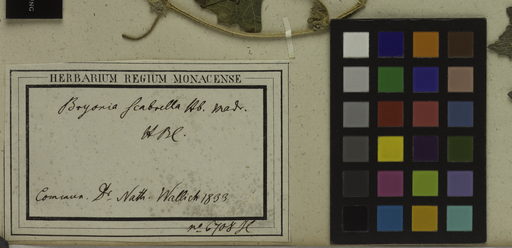 HERBARIUM REGIUM MONACENSE
Bryonia scabrella Hb. madr.
H B C.
Commun. Dr. Nath. Wallich 1833
no. 6708 H